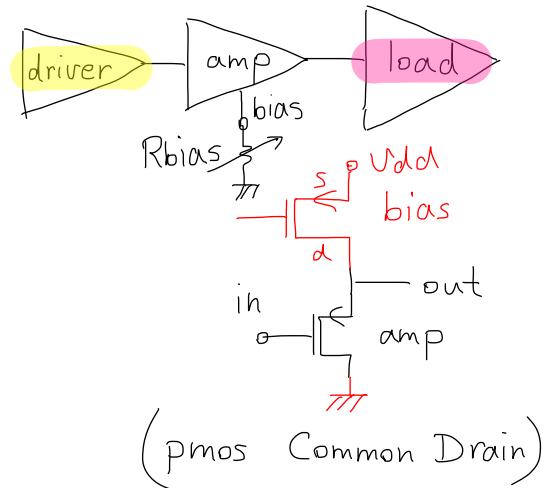 driver
amp
load
bias
Rbias
Vdd
s
bias
d
out
in
amp
(pmos Common Drain)